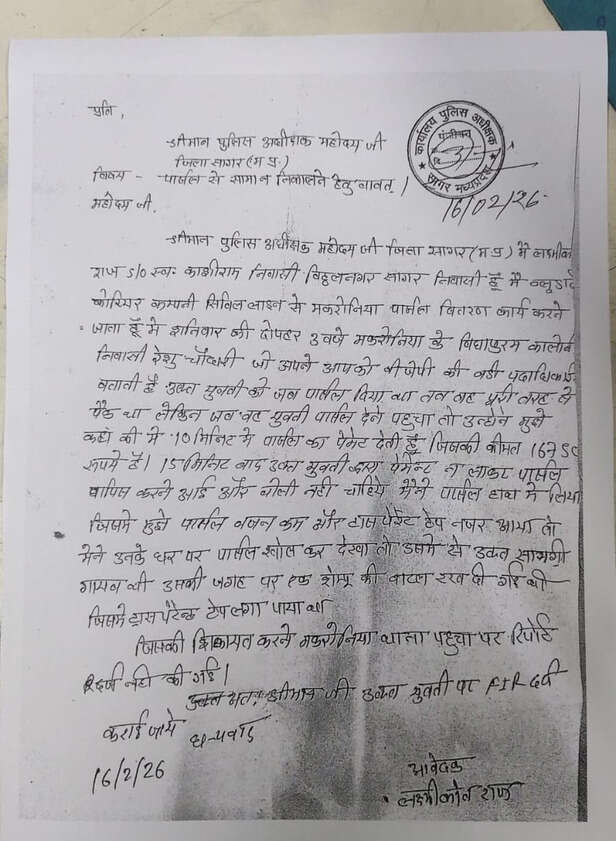 प्रति,
श्रीमान पुलिस अधीक्षक महोदय जी
जिला सागर (म.प्र.)
विषय - पार्सल से सामान निकालने हेतु बावत् ।
महोदय जी.
कार्यालय पुलिस अधीक्षक
सागर मध्यप्रदेश
16/02/26
श्रीमान पुलिस अधीक्षक महोदय जी जिला सागर (म.प्र) मैं लक्ष्मीकांत
राज S/O स्वः काशीराम निवासी विठ्ठलनगर सागर निवासी हूँ मैं ब्लू डार्ट
कोरियर कम्पनी सिविल लाइन से मकरोनिया पार्सल वितरण कार्य करने
जाता हूँ मे शनिवार की दोपहर 3 बजे मकरोनिया के विधापुरम कालोनी
निवासी रेशु चौधरी जो अपने आपको बीजेपी की बडी पदाधिकारी
बताती है उक्त युवती को जब पार्सल दिया था तब वह पूरी तरह से
पैक था लेकिन जब वह युवती पार्सल देने पहुचा तो उन्होने मुझे
कहा की मे 10 मिनिट मे पार्सल का पेमेंट देती हूँ जिसकी कीमत 16750
रूपये है। 15 मिनिट बाद उक्त युवती द्वारा पेमेन्ट न लाकर पार्सल
वापिस करने आई और बोली नही चाहिये मैने पार्सल हाथ मे लिया
जिसमे मुझे पार्सल वजन कम और ट्रांसपेरेंट टेप नजर आया तो
मैने उनके घर पर पार्सल खोल कर देखा तो उसमे से उक्त सामग्री
गायब थी उसकी जगह पर एक शेम्पू की बाटल रख दी गई थी
जिसमे ट्रासपेरेन्ट टेप लगा पाया था
जिसकी शिकायत करने मकरोनिया थाना पहुचा पर रिपोर्ट
दर्ज नही की गई।
अतः श्रीमान जी उक्त युवती पर FIR दर्ज
कराई जाये धन्यवाद
16/2/26
आवेदक
लक्ष्मीकांत राज